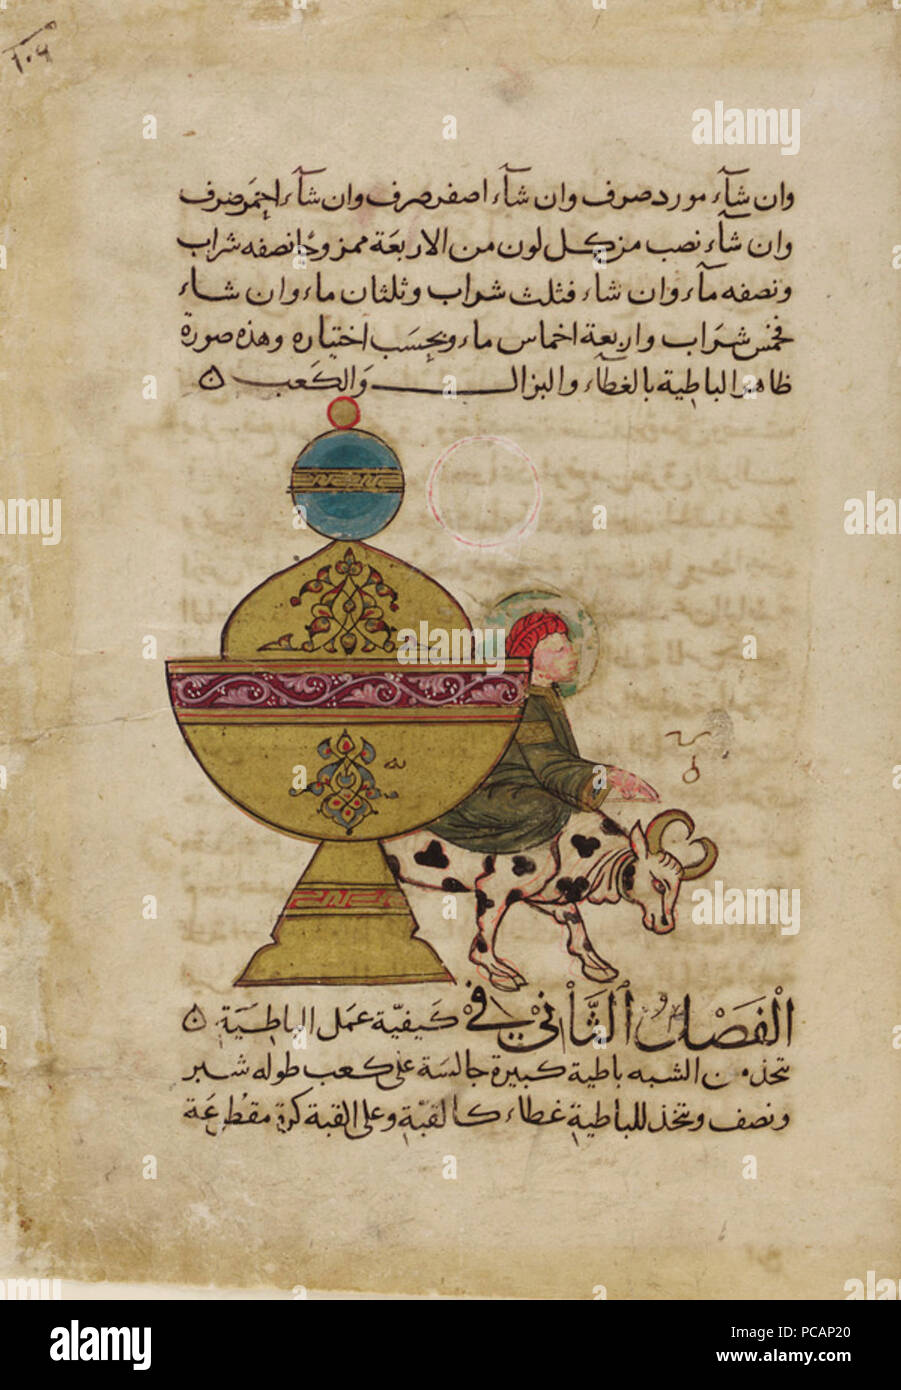 ١٠٩
وان شآء مورد صرف وان شآء اصفر صرف وان شآء احمر صرف
وان شآء نصب من كل لون من الاربعة ممزوجا نصفه شراب
ونصفه مآء وان شاء فثلث شراب وثلثان ماء وان شاء
فخمس شراب واربعة اخماس ماء وبحسب اختياره وهذه صورة
ظاهر الباطية بالغطآء والبزال والكعب ن
الفصل الثاني في كيفية عمل الباطية ن
يتخذ من الشبه باطية كبيرة جالسة على كعب طوله شبر
ونصف ويتخذ للباطية غطاء كالقبة وعلى القبة كرة مقطعة
alamy
Image ID: PCAP20
www.alamy.com